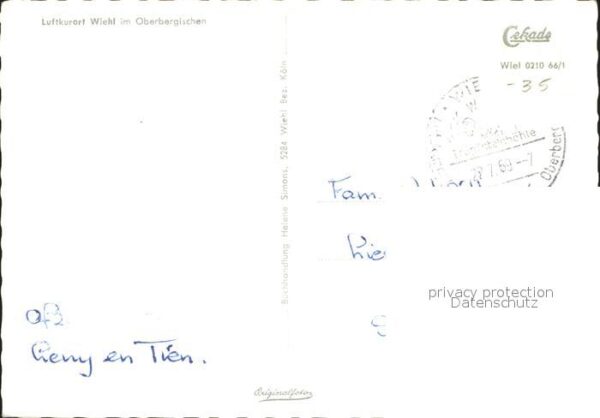 Luftkurort Wiehl im Oberbergischen
Cekade
Wiel 0210 66/1
-35
Tropfsteinhöhle
Oberberg
Buchhandlung Helene Simons, 5284 Wiehl Bez. Köln
Fam.
privacy protection
Datenschutz
afz.
Leny en Tien.
Originalfoto